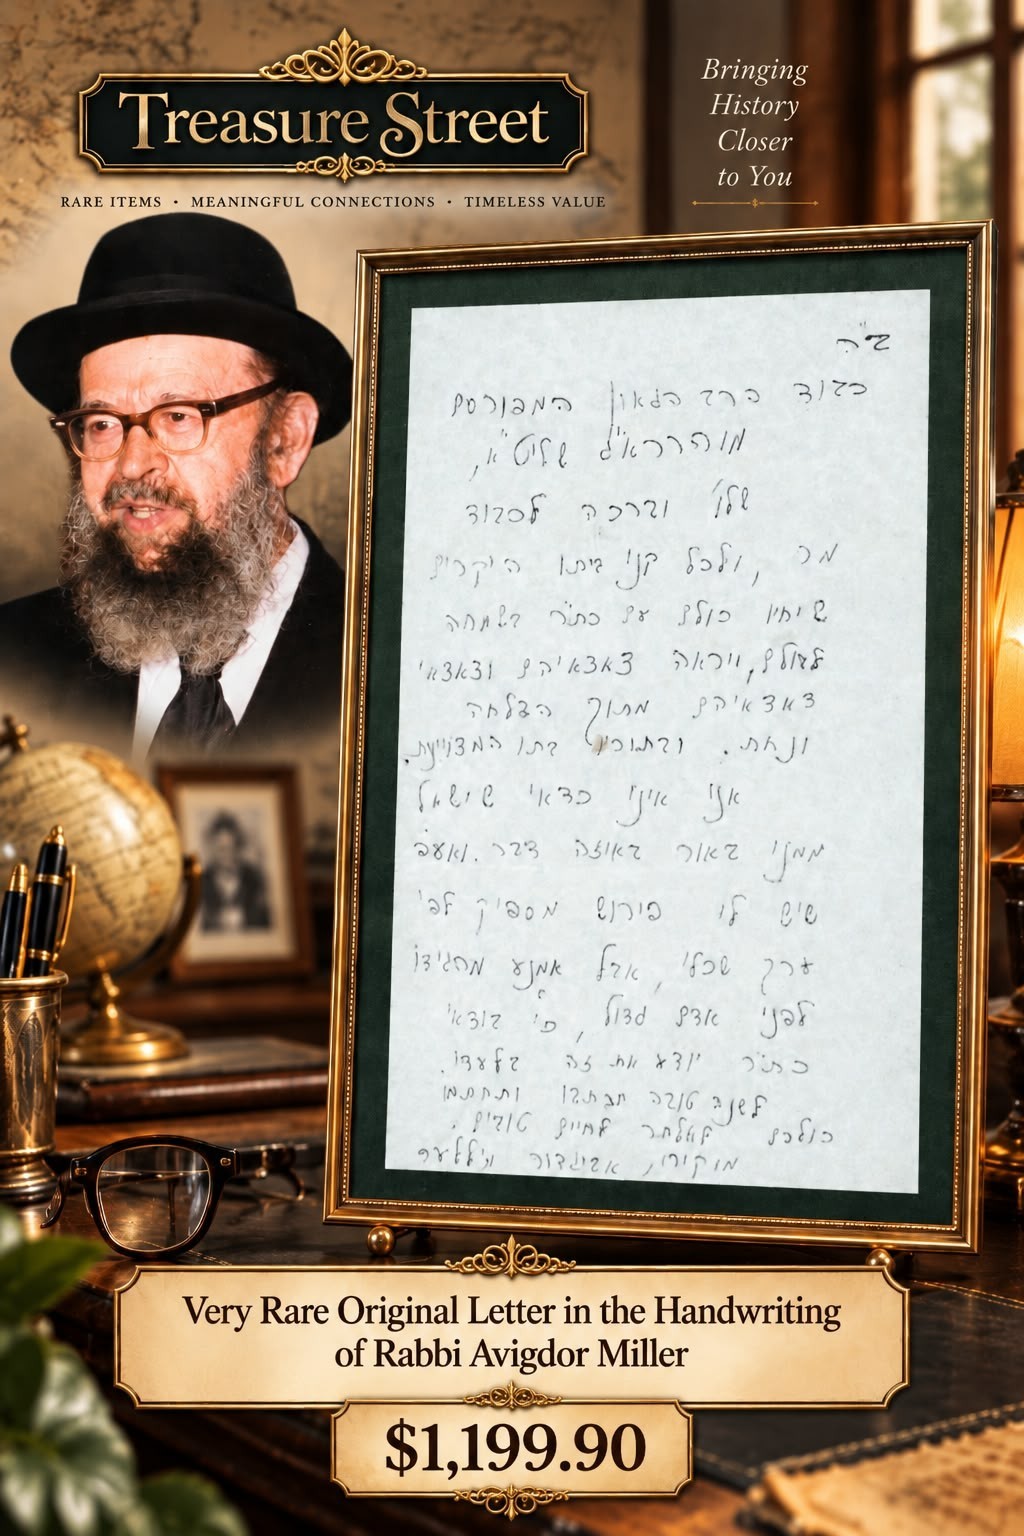 Treasure Street
RARE ITEMS • MEANINGFUL CONNECTIONS • TIMELESS VALUE
Bringing
History
Closer
to You
ב"ה
כבוד הרב הגאון המפורסם
מוהרר"אג שליט"א,
שלו' וברכה לכבוד
מר, ולכל קני ביתו היקרים
שיחיו כולם עם כת"ר בשמחה
לעולם, ויראה צאצאיהם וצאצאי
צאצאיהם מתוך הצלחה
ונחת. בתו המצויינת.
אני איני כדאי שישאל
ממני באור באיזה דבר. ואעפ
שיש לי פירוש מספיק לפי
ערך שכלי, אבל אמנע מהגידו
לפני אדם גדול, כי בודאי
כת"ר יודע את זה בלעדי.
לשנה טובה תכתבו ותחתמו
כולכם לאלתר לחיים טובים.
מוקירו, אביגדור מיללער
Very Rare Original Letter in the Handwriting
of Rabbi Avigdor Miller
$1,199.90